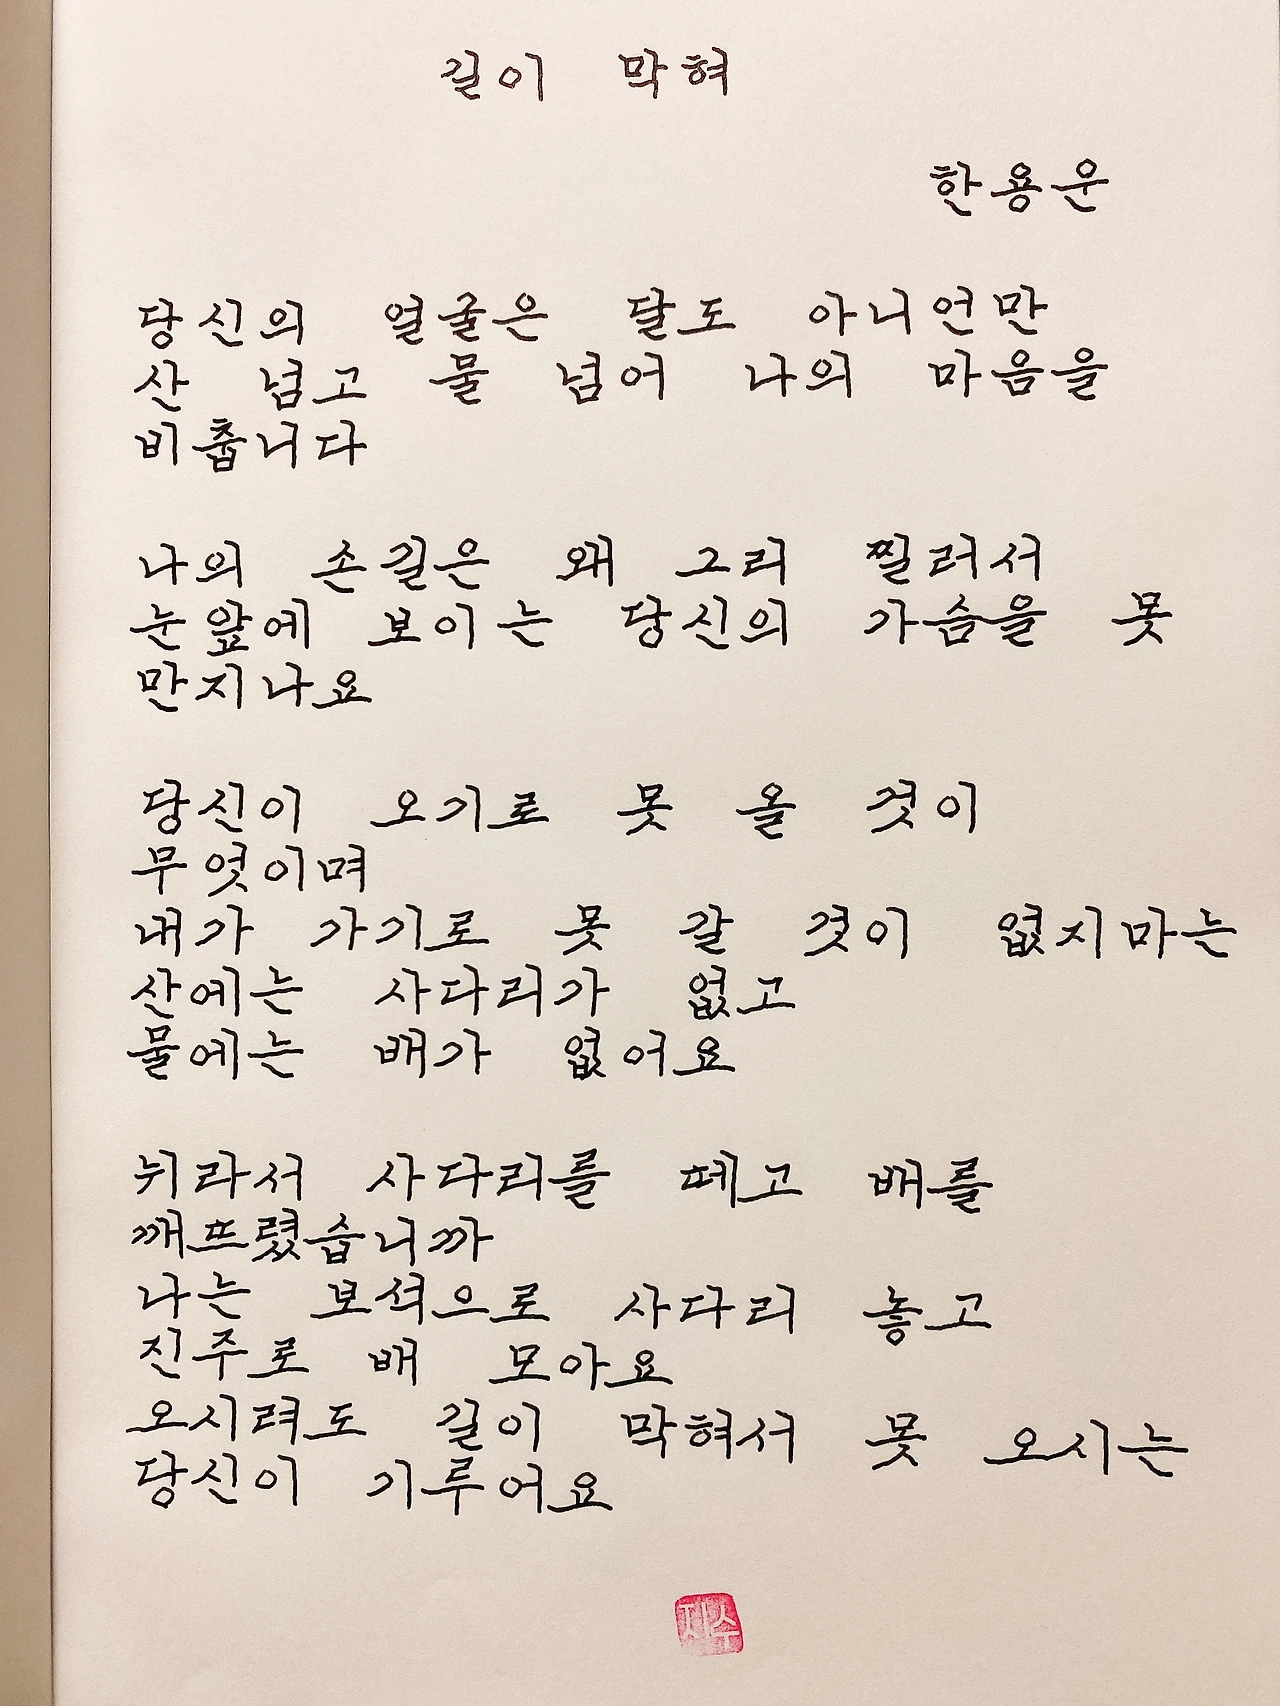 길이 막혀
한용운
당신의 얼굴은 달도 아니언만
산 넘고 물 넘어 나의 마음을
비춥니다
나의 손길은 왜 그리 찔러서
눈앞에 보이는 당신의 가슴을 못
만지나요
당신이 오기로 못 올 것이
무엇이며
내가 가기로 못 갈 것이 없지마는
산에는 사다리가 없고
물에는 배가 없어요
뉘라서 사다리를 떼고 배를
깨뜨렸습니까
나는 보석으로 사다리 놓고
진주로 배 모아요
오시려도 길이 막혀서 못 오시는
당신이 기루어요
지수